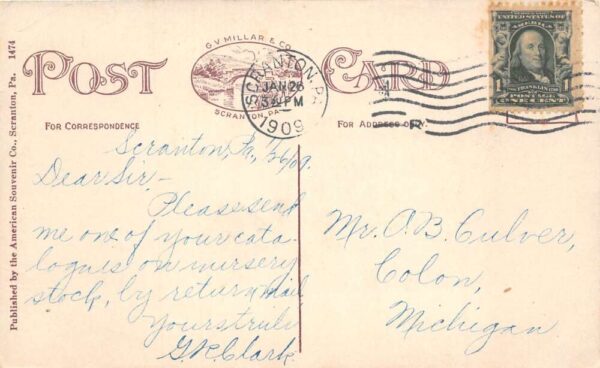 G.V. MILLAR & CO.
POST CARD
SCRANTON, PA.
SCRANTON, PA.
JAN 26
3 PM
1909
UNITED STATES OF AMERICA
1 FRANKLIN 1
POSTAGE
ONE CENT
FOR CORRESPONDENCE
FOR ADDRESS ONLY.
Published by the American Souvenir Co., Scranton, Pa. 1474
Scranton, Pa, 1/26/09.
Dear Sir,-
Please send
me one of your cata-
logues on nursery
stock, by return mail,
Yours truly
G.R. Clark.
Mr. A.B. Culver,
Colon,
Michigan